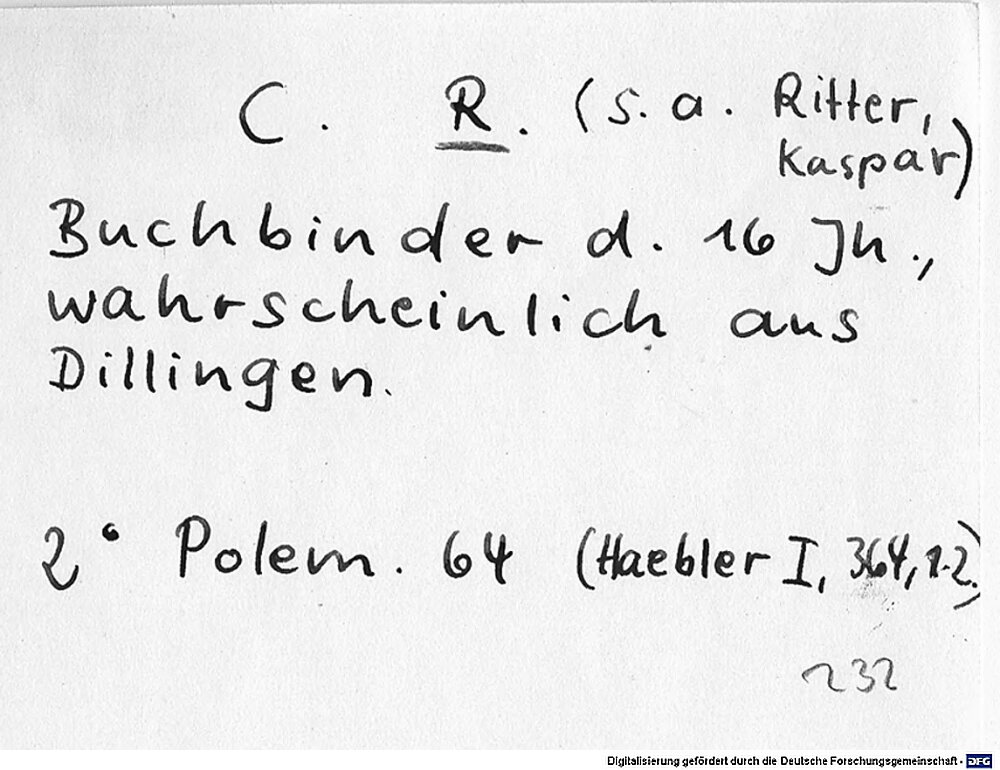 C. R. (s. a. Ritter,
Kaspar)
Buchbinder d. 16 Jh.,
wahrscheinlich aus
Dillingen.
2° Polem. 64 (Haebler I, 364, 1-2)
232
Digitalisierung gefördert durch die Deutsche Forschungsgemeinschaft - DFG